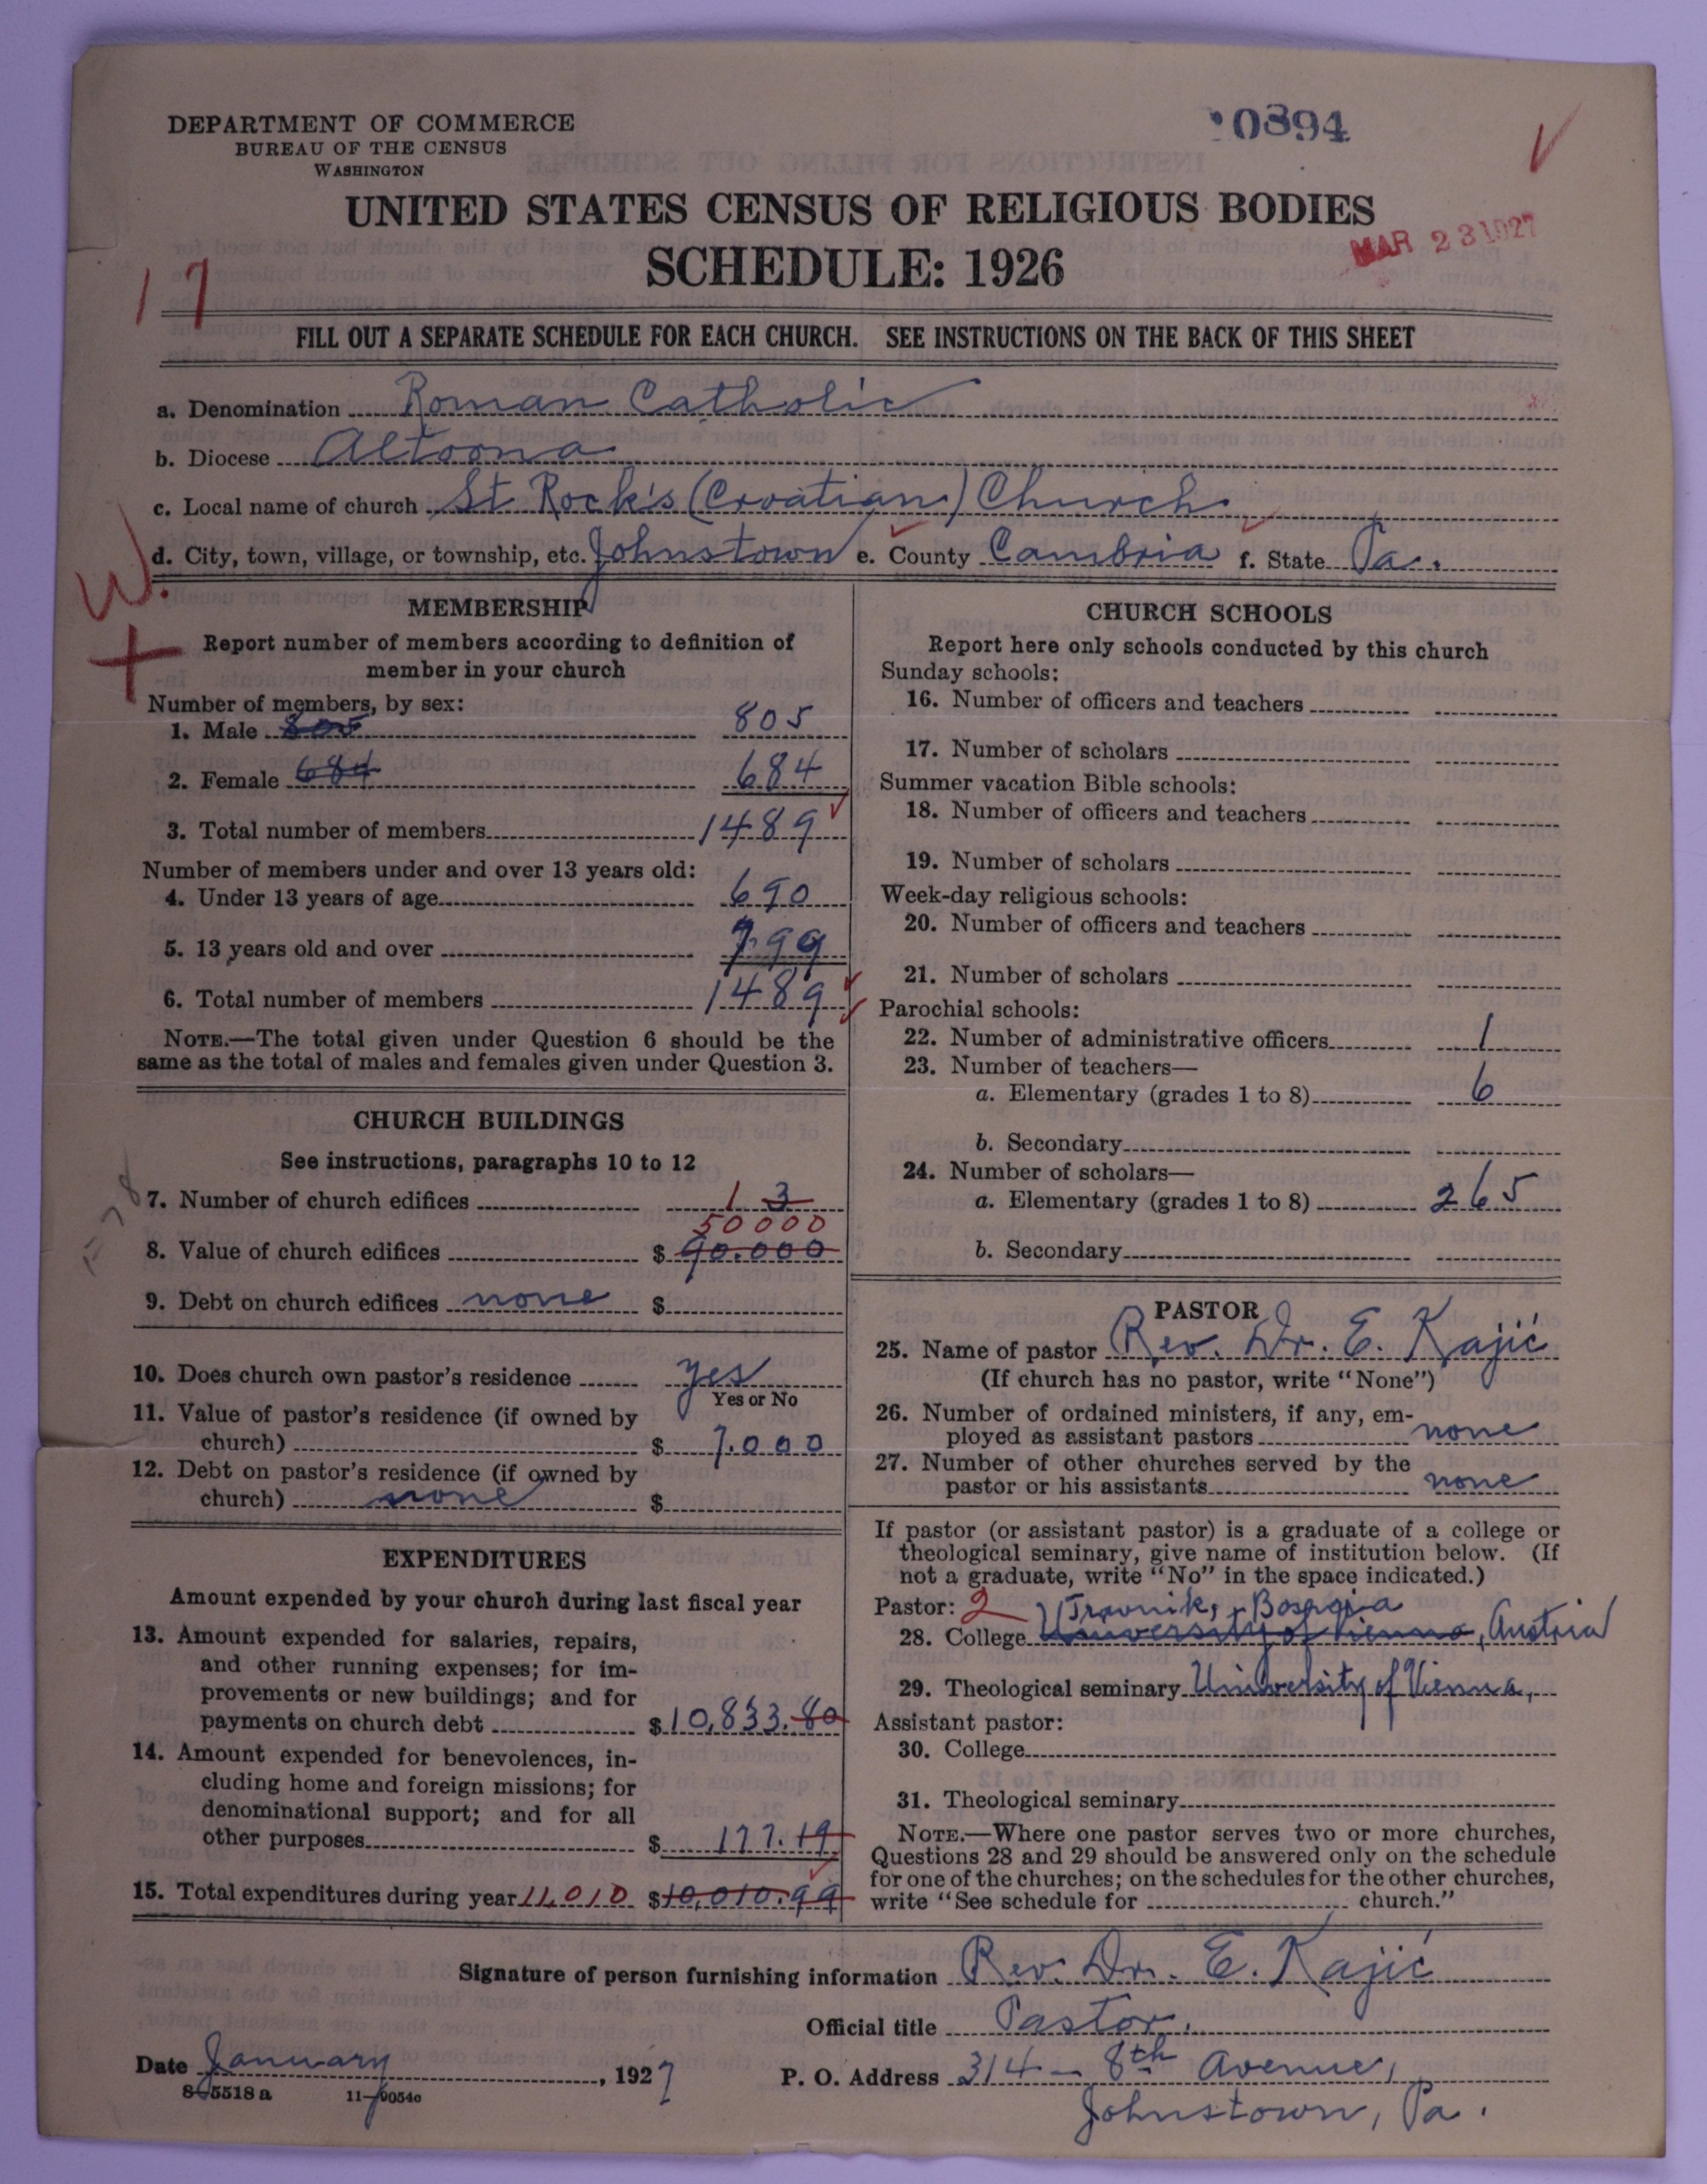 DEPARTMENT OF COMMERCE
BUREAU OF THE CENSUS
WASHINGTON
0894
UNITED STATES CENSUS OF RELIGIOUS BODIES
SCHEDULE: 1926
MAR 23 1927
17
FILL OUT A SEPARATE SCHEDULE FOR EACH CHURCH. SEE INSTRUCTIONS ON THE BACK OF THIS SHEET
a. Denomination Roman Catholic
b. Diocese Altoona
c. Local name of church St. Rock's (Croatian) Church
d. City, town, village, or township, etc. Johnstown e. County Cambria f. State Pa.
W.
MEMBERSHIP
Report number of members according to definition of
member in your church
Number of members, by sex:
1. Male 805 805
2. Female 684 684
3. Total number of members 1489
Number of members under and over 13 years old:
4. Under 13 years of age 690
5. 13 years old and over 799
6. Total number of members 1489
NOTE.—The total given under Question 6 should be the
same as the total of males and females given under Question 3.
CHURCH BUILDINGS
See instructions, paragraphs 10 to 12
7. Number of church edifices 1 3
50000
8. Value of church edifices $ 90.000
9. Debt on church edifices none $
10. Does church own pastor's residence yes
Yes or No
11. Value of pastor's residence (if owned by
church) $ 7.000
12. Debt on pastor's residence (if owned by
church) none $
EXPENDITURES
Amount expended by your church during last fiscal year
13. Amount expended for salaries, repairs,
and other running expenses; for im-
provements or new buildings; and for
payments on church debt $10,833.80
14. Amount expended for benevolences, in-
cluding home and foreign missions; for
denominational support; and for all
other purposes $ 177.19
15. Total expenditures during year 11,010 $10,010.99
CHURCH SCHOOLS
Report here only schools conducted by this church
Sunday schools:
16. Number of officers and teachers
17. Number of scholars
Summer vacation Bible schools:
18. Number of officers and teachers
19. Number of scholars
Week-day religious schools:
20. Number of officers and teachers
21. Number of scholars
Parochial schools:
22. Number of administrative officers 1
23. Number of teachers—
a. Elementary (grades 1 to 8) 6
b. Secondary
24. Number of scholars—
a. Elementary (grades 1 to 8) 265
b. Secondary
PASTOR
25. Name of pastor Rev. Dr. E. Kajić
(If church has no pastor, write "None")
26. Number of ordained ministers, if any, em-
ployed as assistant pastors none
27. Number of other churches served by the
pastor or his assistants none
If pastor (or assistant pastor) is a graduate of a college or
theological seminary, give name of institution below. (If
not a graduate, write "No" in the space indicated.)
Pastor: 2 Travnik, Bosnia
28. College University of Vienna, Austria
29. Theological seminary University of Vienna,
Assistant pastor:
30. College
31. Theological seminary
NOTE.—Where one pastor serves two or more churches,
Questions 28 and 29 should be answered only on the schedule
for one of the churches; on the schedules for the other churches,
write "See schedule for church."
Signature of person furnishing information Rev. Dr. E. Kajić
Official title Pastor.
Date January, 1927
P. O. Address 314 – 8th Avenue,
Johnstown, Pa.
8-5518a 11-9054c